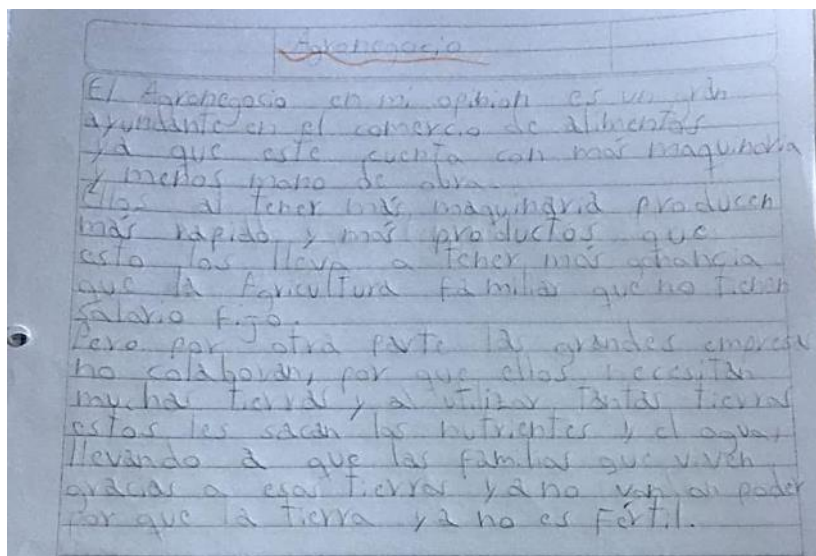 Agronegocio
El Agronegocio en mi opinion es un gran
ayundante en el comercio de alimentos
ya que este cuenta con más maquinaria
y menos mano de obra.
Ellos al tener más maquinaria producen
más rapido y más productos que
esto los lleva a tener más ganancia
que la faricultura familiar que no tienen
salario fijo.
Pero por otra parte las grandes empresa
no colaboran, por que ellos necesitan
muchas tierras y al utilizar tantas tierras
estos les sacan los nutrientes y el agua,
llevando a que las familias que viven
gracias a esas tierras ya no van an poder
por que la tierra ya no es fértil.